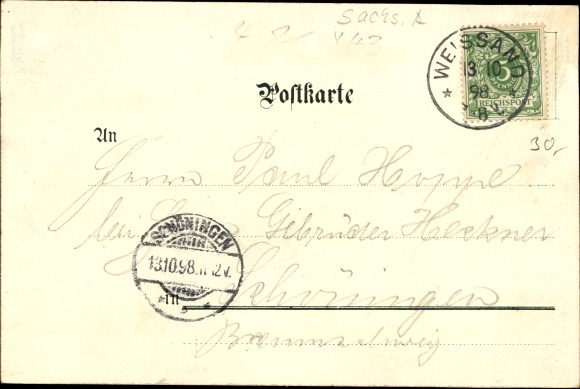 Sachs. A
WEISSAND
13 10
98
8 V.
5
REICHSPOST
Postkarte
30,-
An
Herrn Paul Hoppe
bei Gebrüder Heckner
SCHÖNINGEN
13.10.98. 11-12 V.
In Schöningen
Braunschweig